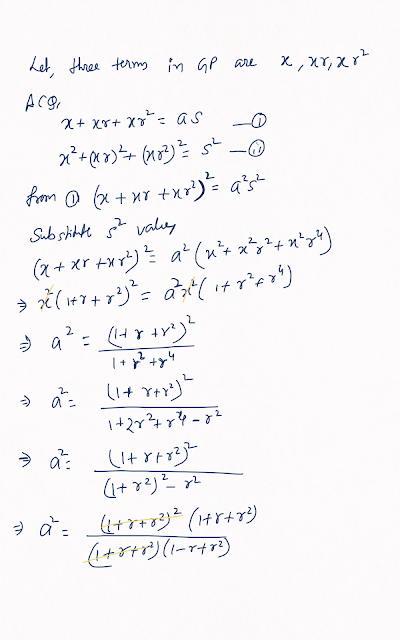 Let, three terms in GP are x, xr, xr²
ACQ,
x + xr + xr² = as —(i)
x² + (xr)² + (xr²)² = s² —(ii)
from (i) (x + xr + xr²)² = a²s²
Substitute s² value,
(x + xr + xr²)² = a²(x² + x²r² + x²r⁴)
⇒ x²(1+r+r²)² = a²x²(1+r²+r⁴)
⇒ a² = (1+r+r²)² / 1+r²+r⁴
⇒ a² = (1+r+r²)² / 1+2r²+r⁴-r²
⇒ a² = (1+r+r²)² / (1+r²)²-r²
⇒ a² = (1+r+r²)² (1+r+r²) / (1+r+r²)(1-r+r²)